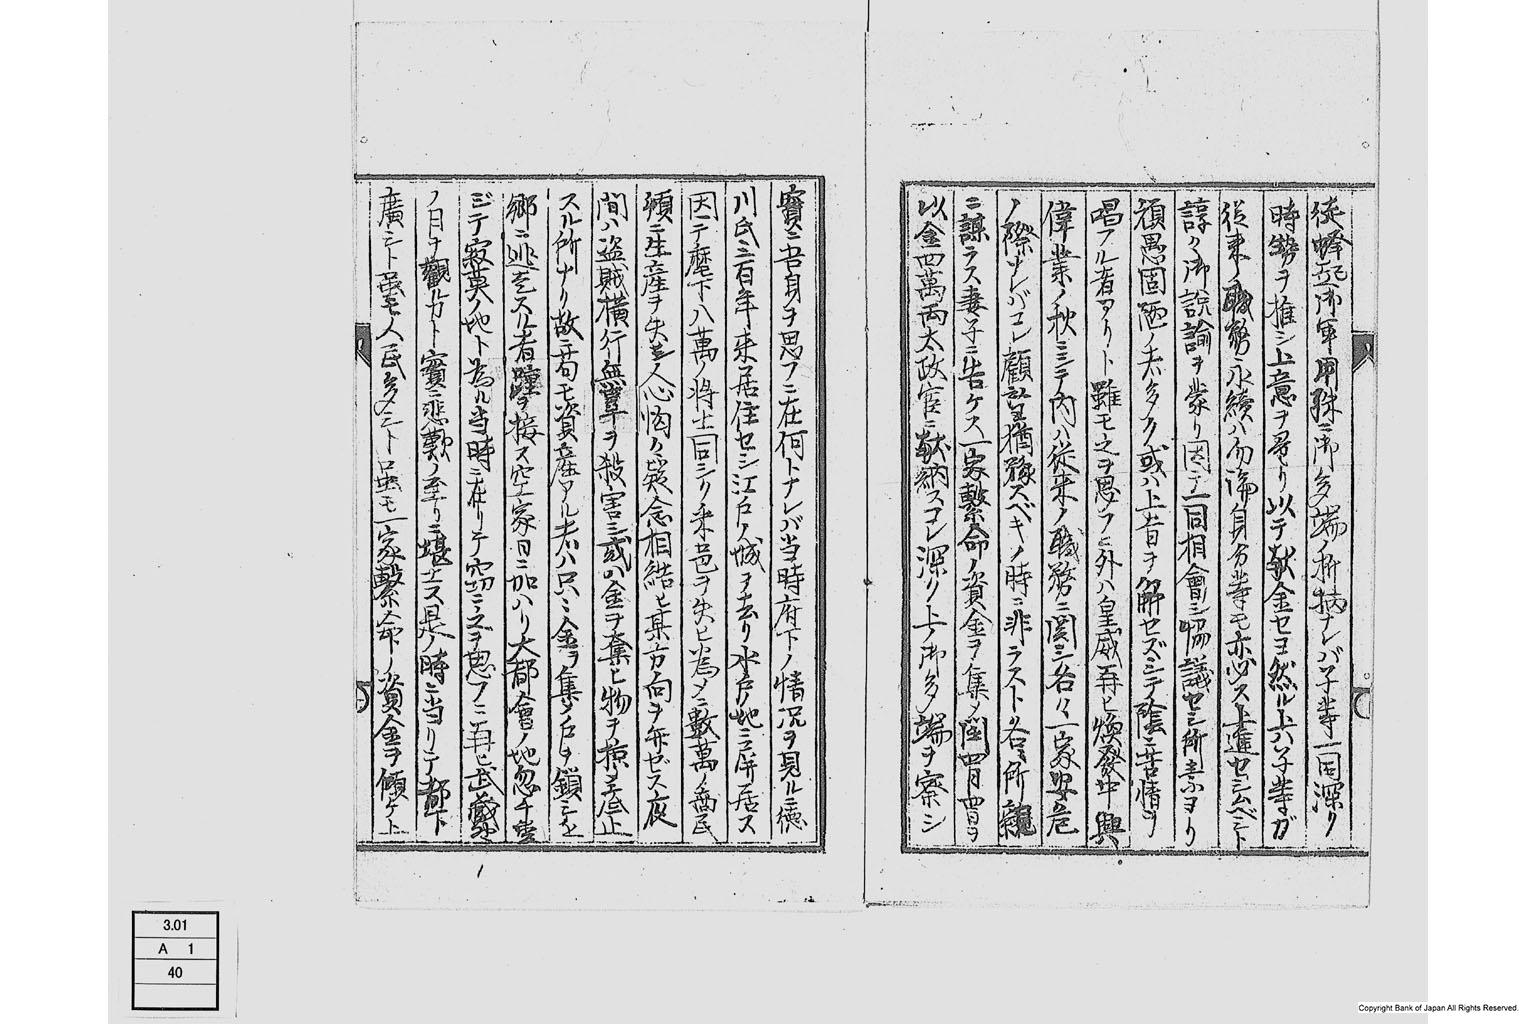 徒蜂起御軍用殊ニ御多端ノ折柄ナレバ予等一同深ク
時勢ヲ推シ上意ヲ尋リ以テ献金セヨ然ル上ハ予等ガ
従来ノ職務永続ハ勿論身分等モ亦必ス上進セシムベシト
諄々御説諭ヲ蒙リ因テ一同相會シ協議セシ所素ヨリ
頑愚固陋ノ者多ク或ハ上旨ヲ解セズシテ陰ニ苦情ヲ
唱フル者アリト雖モ之ヲ思フニ外ハ皇威再ヒ煥發中興
偉業ノ秋ニシテ内ハ従来ノ職務ニ関シ各々一家安危
ノ際ナレバコレ顧望猶豫スベキノ時ニ非ラストシ各所親
ニ謀ラス妻子ニ告ケス一家繫命ノ資金ヲ集メ閏四月四日ヲ
以金四萬両太政官ニ献納スコレ深ク上ノ御多端ヲ察シ
實ニ吾身ヲ思フニ在何トナレバ当時府下ノ情況ヲ見ルニ徳
川氏三百年来居住セシ江戸ノ城ヲ去リ水戸ノ地ニ屏居ス
因テ麾下八萬ノ将士同シク釆邑ヲ失ヒ為メニ數萬ノ商民
頓ニ生産ヲ失ヒ人心恟々疑念相結ヒ其方向ヲ弁ゼス夜
間ハ盗賊横行無辜ヲ殺害シ或ハ金ヲ奪ヒ物ヲ掠ヲ底止
スル所ナリ故ニ苟モ資産アル者ハ只ミ金ヲ集メ戸ヲ鎖シ
郷ニ逃走スル者踵ヲ接ス空家日ニ加ハリ大都會ノ地忽チ
ジテ寂莫ノ地ト為ル当時ニ在リテ窃ニ之ヲ思フニ再ヒ武藏
ノ日ヲ觀ルカト實ニ悲歎ノ至リニ堪エス是ノ時ニ当リテ都下
廣シト雖モ人民多シト虽モ一家繫命ノ資金ヲ傾ケ上
3.01
A 1
40
Copyright Bank of Japan All Rights Reserved.